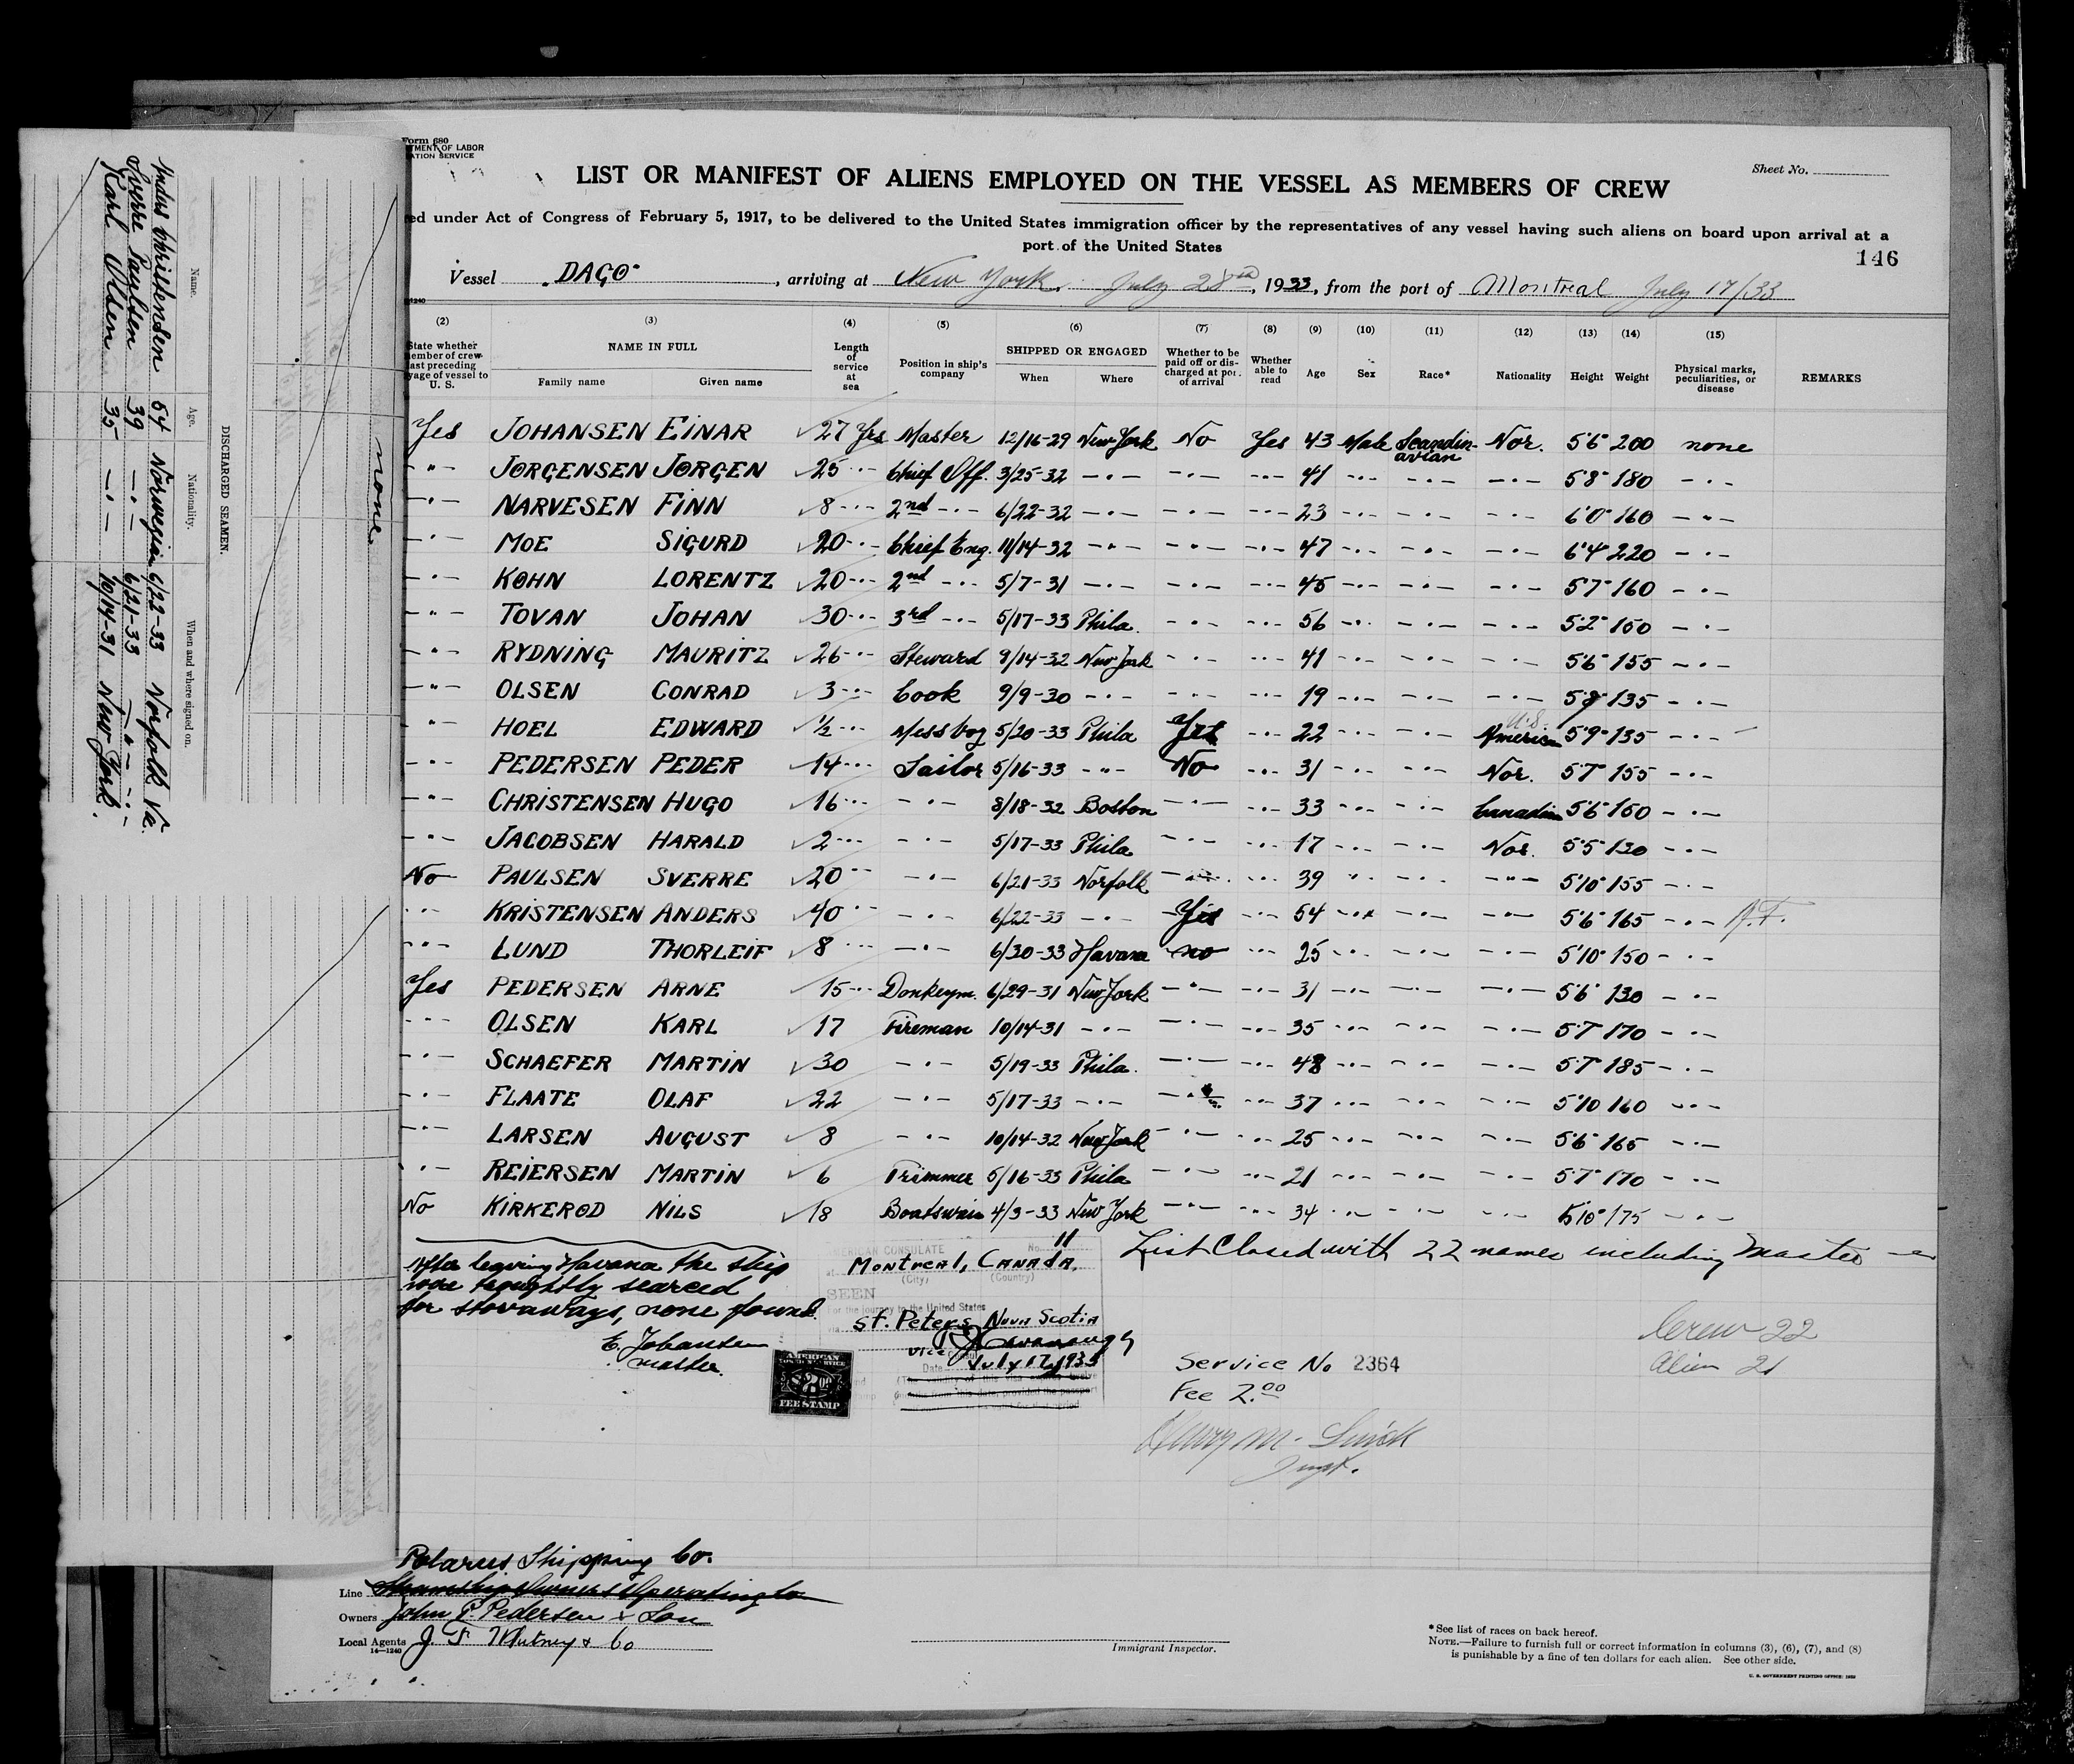 Form 680
TMENT OF LABOR
ATION SERVICE
Sheet No.
LIST OR MANIFEST OF ALIENS EMPLOYED ON THE VESSEL AS MEMBERS OF CREW
ed under Act of Congress of February 5, 1917, to be delivered to the United States immigration officer by the representatives of any vessel having such aliens on board upon arrival at a
port of the United States
146
Vessel "DAGO", arriving at New York, July 28, 1933, from the port of Montreal July 17/33
(2) (3) (4) (5) (6) (7) (8) (9) (10) (11) (12) (13) (14) (15)
State whether member of crew last preceding yage of vessel to U. S. NAME IN FULL Family name Given name Length of service at sea Position in ship's company SHIPPED OR ENGAGED When Where Whether to be paid off or discharged at port of arrival Whether able to read Age Sex Race* Nationality Height Weight Physical marks, peculiarities, or disease REMARKS
Yes JOHANSEN EINAR 27 Yrs Master 12/16-29 New York No Yes 43 Male Scandinavian Nor. 5'6" 200 none
-"- JØRGENSEN JØRGEN 25 -"- Chief Off. 3/25-32 -"- -"- -"- 41 -"- -"- -"- 5'8" 180 -"-
-"- NARVESEN FINN 8 -"- 2nd -"- 6/22-32 -"- -"- -"- 23 -"- -"- -"- 6'0" 160 -"-
-"- MOE SIGURD 20 -"- Chief Eng. 11/14-32 -"- -"- -"- 47 -"- -"- -"- 6'4" 220 -"-
-"- KØHN LORENTZ 20 -"- 2nd -"- 5/7-31 -"- -"- -"- 45 -"- -"- -"- 5'7" 160 -"-
-"- TOVAN JOHAN 30 -"- 3rd -"- 5/17-33 Phila. -"- -"- 56 -"- -"- -"- 5'2" 150 -"-
-"- RYDNING MAURITZ 26 -"- Steward 9/14-32 New York -"- -"- 41 -"- -"- -"- 5'6" 155 -"-
-"- OLSEN CONRAD 3 -"- Cook 9/9-30 -"- -"- -"- 19 -"- -"- -"- 5'8" 135 -"-
-"- HOEL EDWARD ½ -"- Messboy 5/20-33 Phila Yes -"- 22 -"- -"- U.S. American 5'9" 135 -"-
-"- PEDERSEN PEDER 14 -"- Sailor 5/16-33 -"- No -"- 31 -"- -"- Nor. 5'7" 155 -"-
-"- CHRISTENSEN HUGO 16 -"- -"- 8/18-32 Boston -"- -"- 33 -"- -"- Canadian 5'6" 150 -"-
-"- JACOBSEN HARALD 2 -"- -"- 5/17-33 Phila -"- -"- 17 -"- -"- Nor. 5'5" 130 -"-
No PAULSEN SVERRE 20 -"- -"- 6/21-33 Norfolk -"- -"- 39 -"- -"- -"- 5'10" 155 -"-
-"- KRISTENSEN ANDERS 40 -"- -"- 6/22-33 -"- Yes -"- 54 -"- -"- -"- 5'6" 165 -"-
-"- LUND THORLEIF 8 -"- -"- 6/30-33 Havana no -"- 25 -"- -"- -"- 5'10" 150 -"-
Yes PEDERSEN ARNE 15 -"- Donkeym. 6/29-31 New York -"- -"- 31 -"- -"- -"- 5'6" 130 -"-
-"- OLSEN KARL 17 Fireman 10/14-31 -"- -"- -"- 35 -"- -"- -"- 5'7" 170 -"-
-"- SCHAEFER MARTIN 30 -"- 5/19-33 Phila. -"- -"- 48 -"- -"- -"- 5'7" 185 -"-
-"- FLAATE OLAF 22 -"- 5/17-33 -"- -"- -"- 37 -"- -"- -"- 5'10 160 -"-
-"- LARSEN AUGUST 8 -"- 10/14-32 New York -"- -"- 25 -"- -"- -"- 5'6" 165 -"-
-"- REIERSEN MARTIN 6 Trimmer 5/16-33 Phila -"- -"- 21 -"- -"- -"- 5'7" 170 -"-
No KIRKERØD NILS 18 Boatswain 4/3-33 New York -"- -"- 34 -"- -"- -"- 5'10" 175 -"-
List Closed with 22 names including Master
After leaving Havana the ship
were troughtly searced
for stovaways, none found.
E. Johansen
master.
AMERICAN CONSULATE No. 11
at Montreal, Canada.
(City) (Country)
SEEN
For the journey to the United States
St. Peters, Nova Scotia
Vice Consul
Date July 17, 1933
AMERICAN
FEE STAMP
Service No 2364
Fee 2.00
Crew 22
Alien 21
Henry M.
Inspt.
Polarus Shipping Co.
Line Steamship Owners Operating Co
Owners John P. Pedersen & Son
Local Agents J. F. Whitney & Co
14—1240
Immigrant Inspector.
*See list of races on back hereof.
NOTE.—Failure to furnish full or correct information in columns (3), (6), (7), and (8)
is punishable by a fine of ten dollars for each alien. See other side.
U. S. GOVERNMENT PRINTING OFFICE: 1932
none
DISCHARGED SEAMEN.
Name. Age. Nationality. When and where signed on.
Andas Christensen 54 Norwegian 6/22-33 Norfolk Va.
Sverre Paulsen 39 -"- 6/21-33 -"- -"-
Karl Olsen 35 -"- 10/14-31 New York.